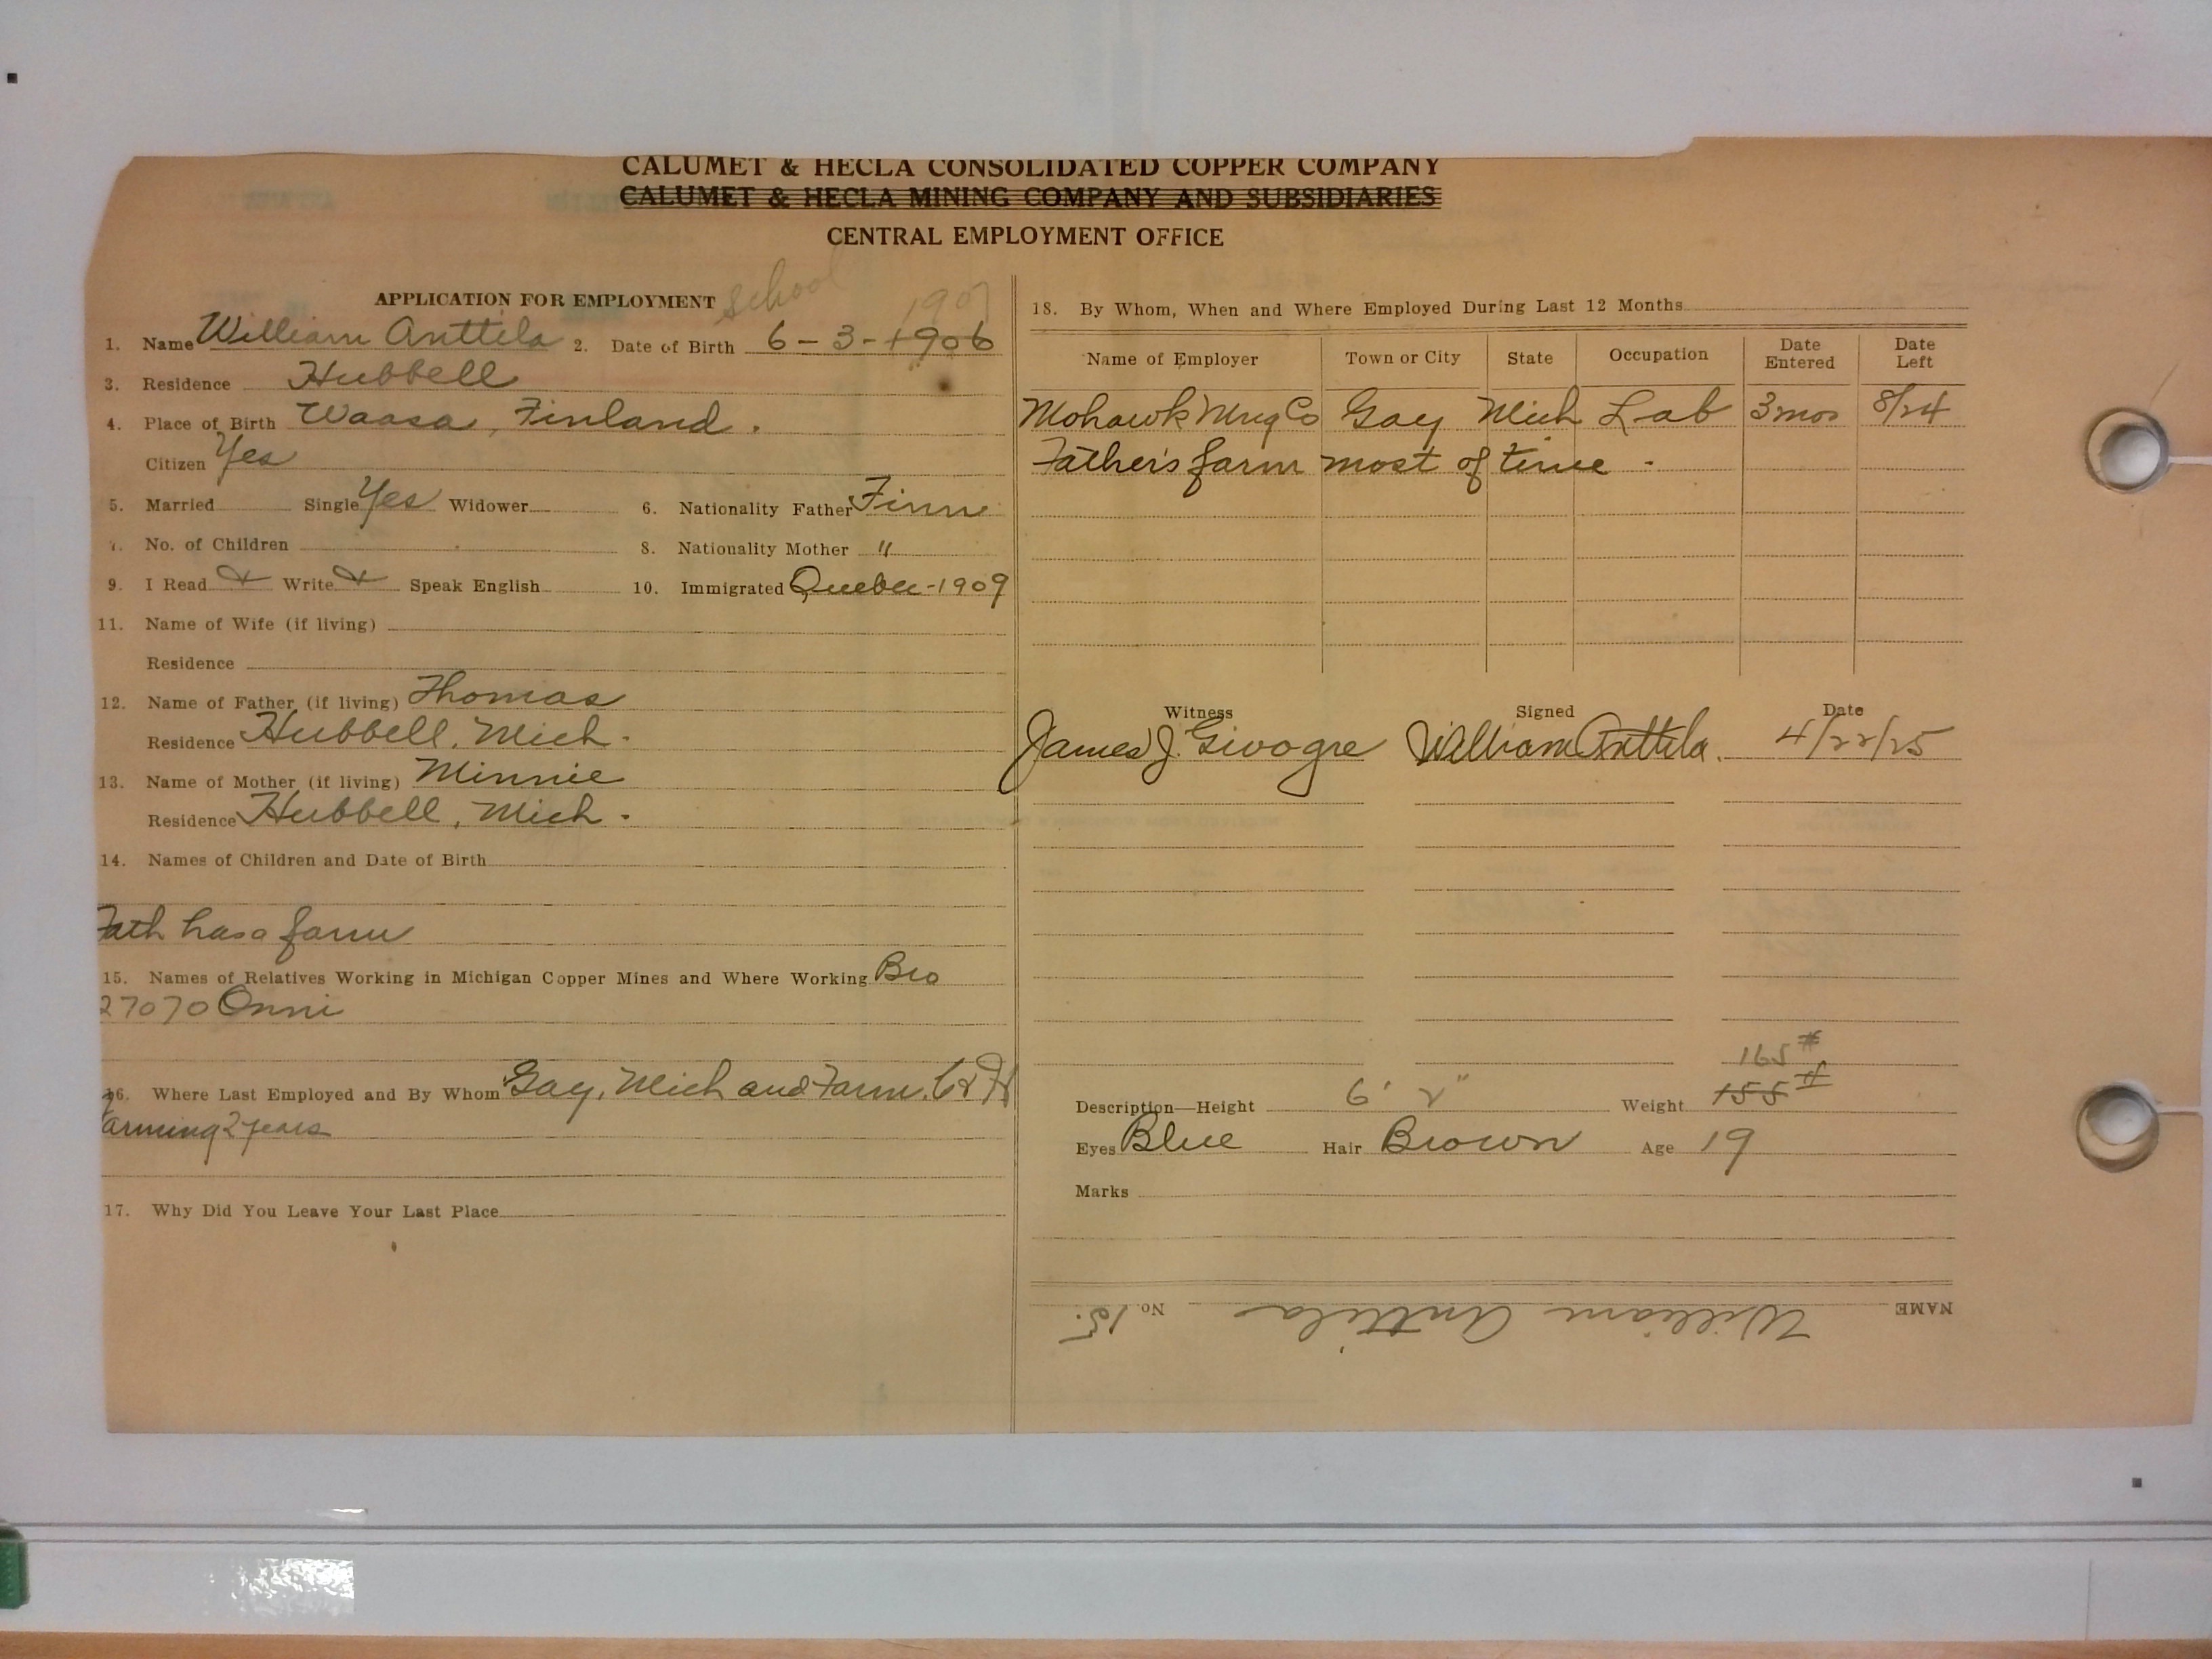 CALUMET & HECLA CONSOLIDATED COPPER COMPANY
CALUMET & HECLA MINING COMPANY AND SUBSIDIARIES
CENTRAL EMPLOYMENT OFFICE
APPLICATION FOR EMPLOYMENT School 1907
1. Name William Anttila 2. Date of Birth 6-3-1906
3. Residence Hubbell
4. Place of Birth Waasa, Finland.
Citizen Yes
5. Married Single Yes Widower 6. Nationality Father Finn
7. No. of Children 8. Nationality Mother "
9. I Read X Write X Speak English 10. Immigrated Quebec-1909
11. Name of Wife (if living)
Residence
12. Name of Father (if living) Thomas
Residence Hubbell, Mich.
13. Name of Mother (if living) Minnie
Residence Hubbell, Mich.
14. Names of Children and Date of Birth
Fath has a farm
15. Names of Relatives Working in Michigan Copper Mines and Where Working Bro
27070 Onni
16. Where Last Employed and By Whom Gay, Mich and Farm. C & H
farming 2 years
17. Why Did You Leave Your Last Place
18. By Whom, When and Where Employed During Last 12 Months
Name of Employer Town or City State Occupation Date Entered Date Left
Mohawk Mng Co Gay Mich Lab 3 mos 8/24
Father's farm most of time -
Witness Signed Date
James J. Givogre William Anttila. 4/22/25
165 #
Description—Height 6' 2" Weight 155 #
Eyes Blue Hair Brown Age 19
Marks
NAME William Anttila No. 15.